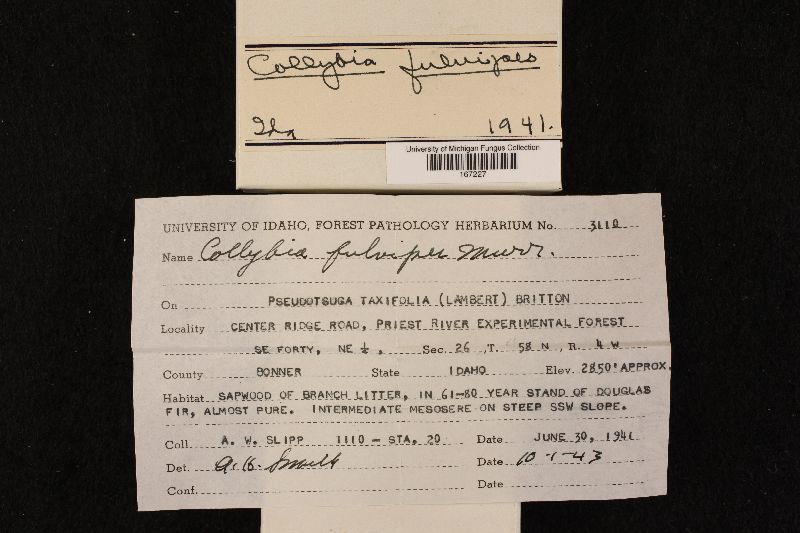 Collybia fulvipes
Ida 1941.
University of Michigan Fungus Collection
167227
UNIVERSITY OF IDAHO, FOREST PATHOLOGY HERBARIUM No. 3110
Name Collybia fulvipes Murr.
On PSEUDOTSUGA TAXIFOLIA (LAMBERT) BRITTON
Locality CENTER RIDGE ROAD, PRIEST RIVER EXPERIMENTAL FOREST
SE FORTY, NE ¼, Sec. 26, T. 58 N, R. 4 W
County BONNER State IDAHO Elev. 2850' APPROX.
Habitat SAPWOOD OF BRANCH LITTER, IN 61-80 YEAR STAND OF DOUGLAS
FIR, ALMOST PURE. INTERMEDIATE MESOSERE ON STEEP SSW SLOPE.
Coll. A. W. SLIPP 1110 - STA, 20 Date JUNE 30, 1941
Det. A.H. Smith Date 10-1-43
Conf. Date